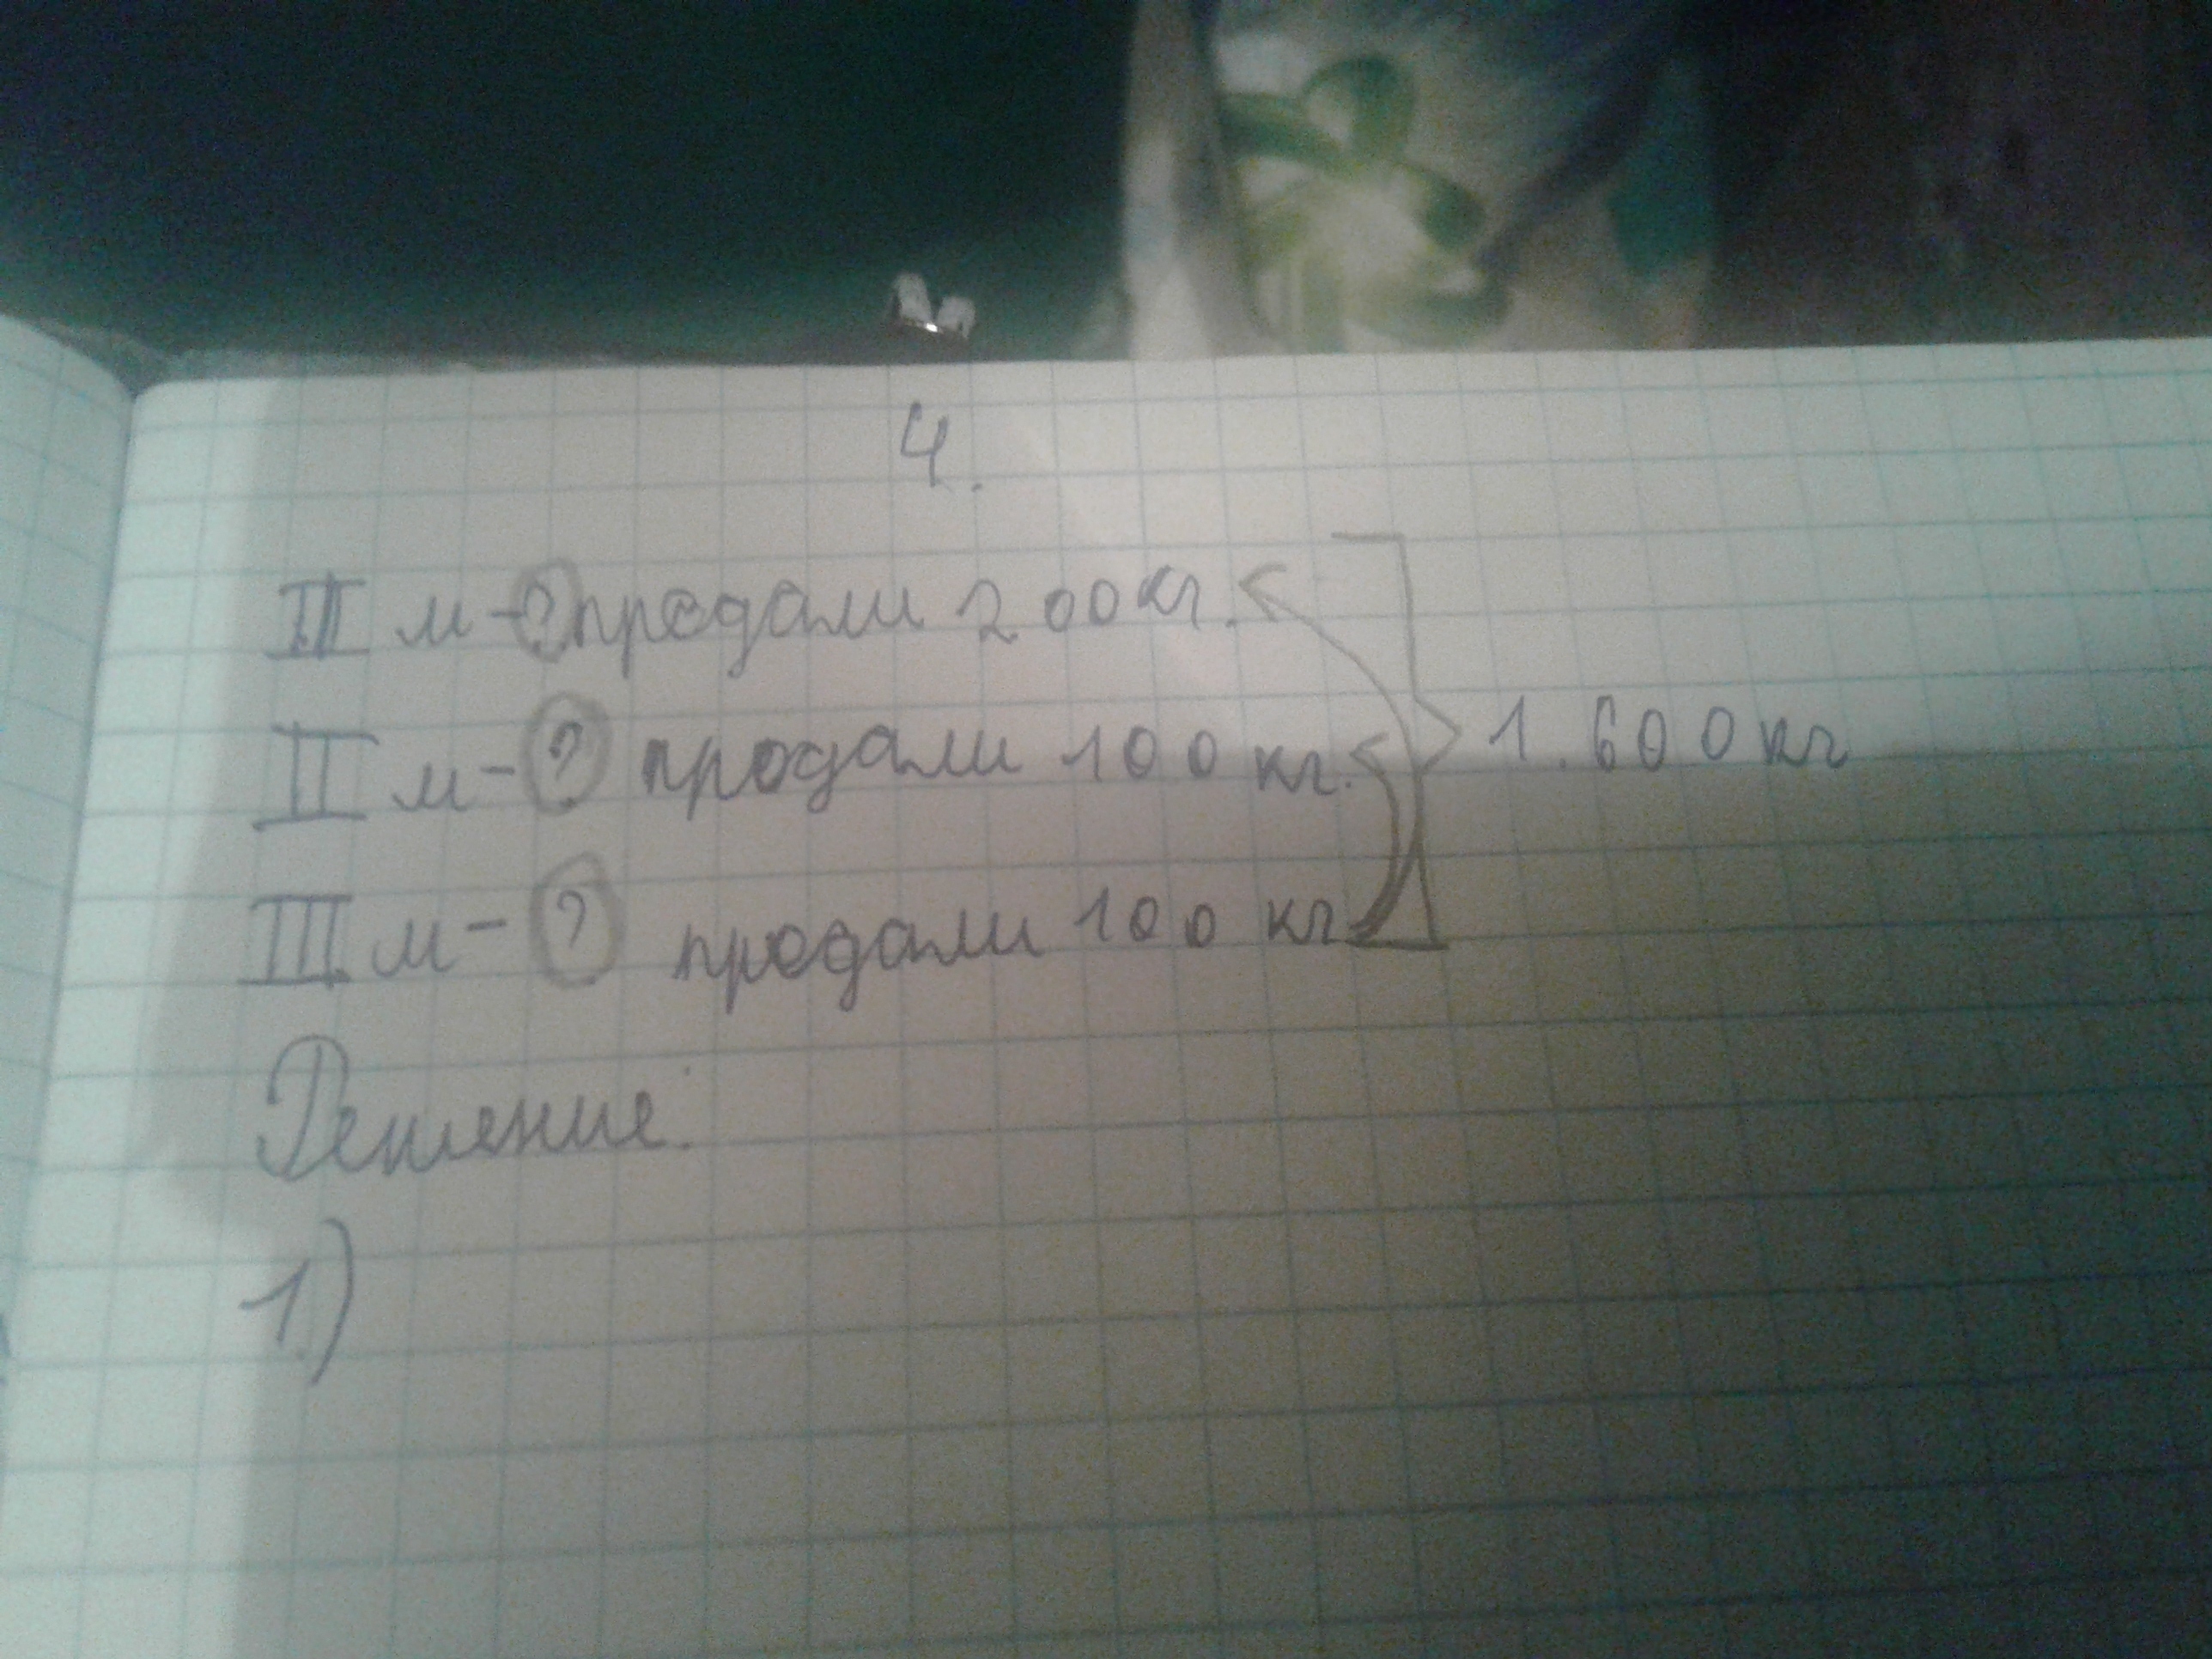 4.
II м-? продали 200кг.
II м-? продали 100 кг.
III м-? продали 100 кг
1.600кг
Решение:
1.)